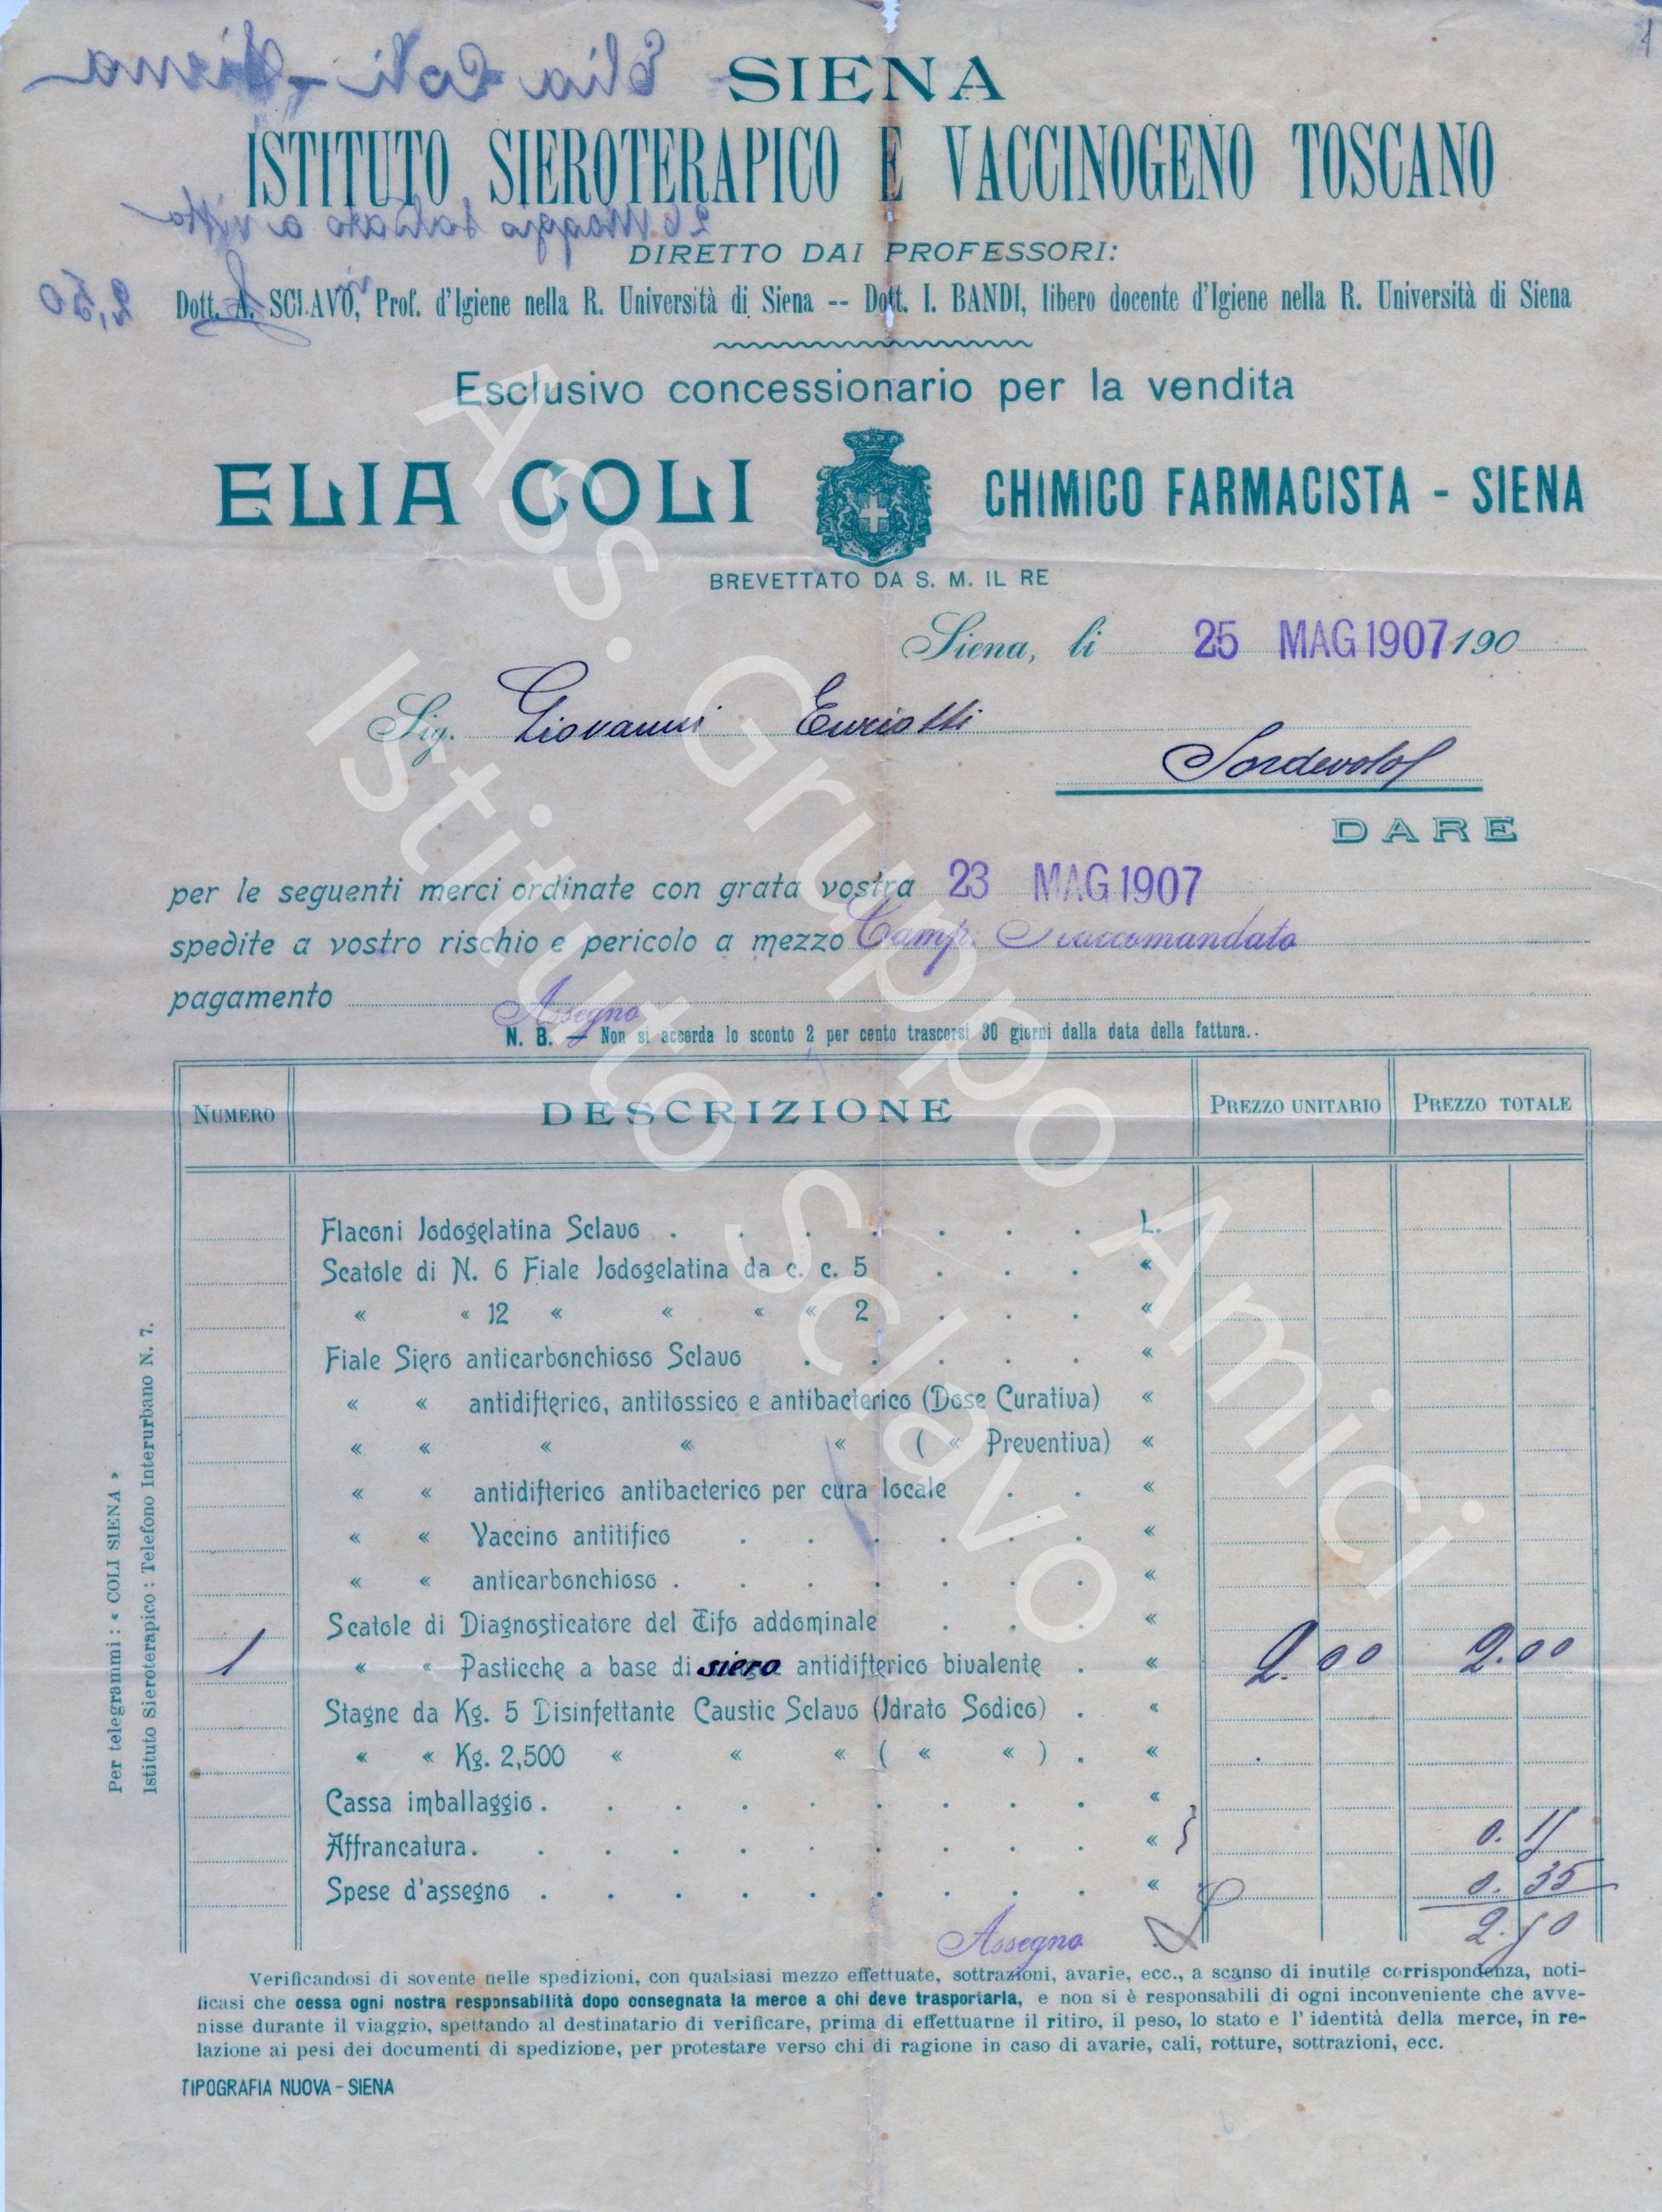 1
Elia Coli - Siena
SIENA
ISTITUTO SIEROTERAPICO E VACCINOGENO TOSCANO
26 Maggio saldato a vista
DIRETTO DAI PROFESSORI:
2,50
Dott. A. SCLAVO, Prof. d'Igiene nella R. Università di Siena -- Dott. I. BANDI, libero docente d'Igiene nella R. Università di Siena
Esclusivo concessionario per la vendita
ELIA COLI CHIMICO FARMACISTA - SIENA
BREVETTATO DA S. M. IL RE
Siena, li 25 MAG 1907 190
Sig. Giovanni
Sordevolo
DARE
per le seguenti merci ordinate con grata vostra 23 MAG 1907
spedite a vostro rischio e pericolo a mezzo Camp. Raccomandato
pagamento Assegno
N. B. — Non si accorda lo sconto 2 per cento trascorsi 30 giorni dalla data della fattura..
NUMERO DESCRIZIONE PREZZO UNITARIO PREZZO TOTALE
Flaconi Jodogelatina Sclavo . . . . . . . L.
Scatole di N. 6 Fiale Jodogelatina da c. c. 5 . . . «
« « 12 « « « « 2 . . . «
Fiale Siero anticarbonchioso Sclavo . . . . . «
« « antidifterico, antitossico e antibacterico (Dose Curativa) «
« « « « « ( « Preventiva) «
« « antidifterico antibacterico per cura locale . . «
« « Vaccino antitifico . . . . . . «
« « anticarbonchioso . . . . . . . «
Scatole di Diagnosticatore del Tifo addominale . . . «
1 « « Pasticche a base di siero antidifterico bivalente . « 2.00 2.00
Stagne da Kg. 5 Disinfettante Caustic Sclavo (Idrato Sodico) . «
« « Kg. 2,500 « « « ( « « ) . «
Cassa imballaggio . . . . . . . . . «
Affrancatura . . . . . . . . . . « } 0.15
Spese d'assegno . . . . . . . . . « 0.35
Assegno 2.50
Verificandosi di sovente nelle spedizioni, con qualsiasi mezzo effettuate, sottrazioni, avarie, ecc., a scanso di inutile corrispondenza, noti-
ficasi che cessa ogni nostra responsabilità dopo consegnata la merce a chi deve trasportarla, e non si è responsabili di ogni inconveniente che avve-
nisse durante il viaggio, spettando al destinatario di verificare, prima di effettuarne il ritiro, il peso, lo stato e l'identità della merce, in re-
lazione ai pesi dei documenti di spedizione, per protestare verso chi di ragione in caso di avarie, cali, rotture, sottrazioni, ecc.
TIPOGRAFIA NUOVA - SIENA
Per telegrammi : « COLI SIENA »
Istituto Sieroterapico : Telefono Interurbano N. 7.
As. Gruppo Amici
Istituto Sclavo